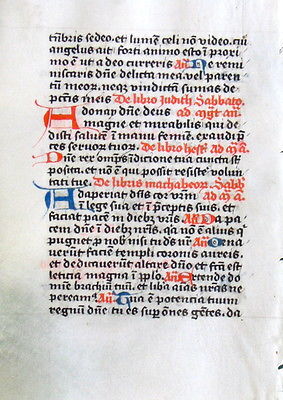 tn̄bris sedeo. et lumen̄ celi nō video. cui
angelus ait forti animo esto ī proxi
mo ē ut a deo cureris An̄ Ne remi
niscaris dn̄e delicta mea. vel paren
tū meor. neqꝫ vindictā sumas de
pctīs meis De libro Judith. Sabbato.
Adonay dn̄e deus ad mgt̄ an̄
magne et mirabilis qui de
disti salutē ī manu femine. exaudi p̄
ces servor tuor. De libro hest̄. Ad m̄ a.
Dn̄e rex om̄ps ī dicione tua cuncta st̄
posita. et nō ē qui possit resiste volu
tati tue. De libris machabeor. Sabb̄
Adaperiat dn̄s cor vr̄m ad m̄ a.
ī lege sua et ī p̄ceptis suis. et
faciat pacē ī diebꝫ vr̄is An̄ Da pa
cem dn̄e ī diebꝫ nr̄is. qa nō ē alius q̄
pugnet p̄ nob nisi tu ds̄ nr̄ An̄ Orna
verūt faciē templi coronis aureis.
et dedicaverūt altare dn̄o. et fctā est
leticia magna ī pplo. An̄
mie brachiū tuū. et lib̄a aīas nr̄as ne
peream̄ An̄ Tua ē potencia tuum
regnū dn̄e tu es sup̄ om̄es gētes. da